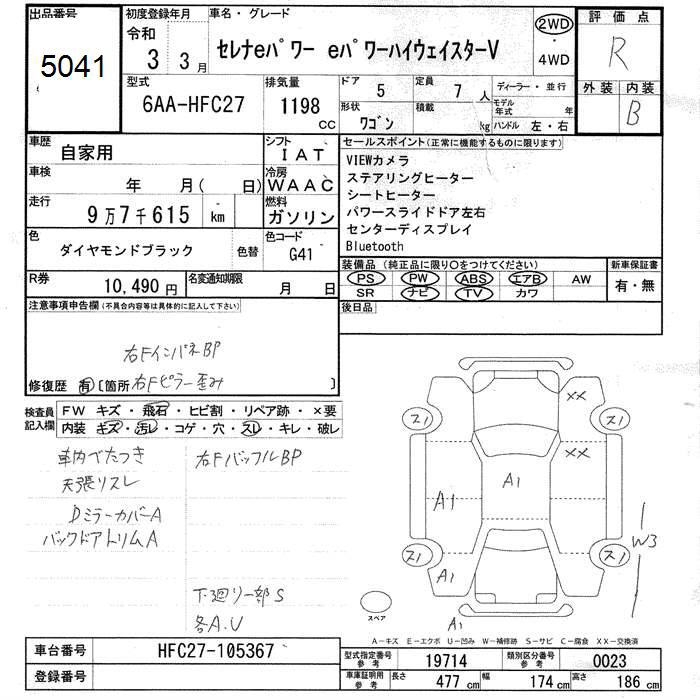 出品番号
5041
初度登録年月
令和
3 3月
車名・グレード
セレナeパワー eパワーハイウェイスターV
2WD
・
4WD
評価点
R
外装 内装
B
型式
6AA-HFC27
排気量
1198
cc
ドア
5
定員
7人
形状
ワゴン
積載
kg
ディーラー・並行
モデル年式 年
ハンドル 左・右
車歴
自家用
シフト
IAT
車検
年 月( 日)
冷房
WAAC
走行
9万7千615 km
燃料
ガソリン
色
ダイヤモンドブラック
色替
色コード
G41
R券
10,490円
名変通知期限
月 日
セールスポイント(正常に機能するものに限ります)
VIEWカメラ
ステアリングヒーター
シートヒーター
パワースライドドア左右
センターディスプレイ
Bluetooth
装備品(純正品に限り○をつけてください)
PS PW ABS エアB AW
SR ナビ TV カワ
新車保証書
有・無
後日品
注意事項申告欄(不具合内容等は具体的に記入して下さい)
右FインパネBP
修復歴 有〔箇所 右Fピラー歪み 〕
検査員
記入欄
FW キズ・飛石・ヒビ割・リペア跡・×要
内装 キズ・汚レ・コゲ・穴・スレ・キレ・破レ
車内べたつき
天張リスレ
DミラーカバーA
バックドアトリムA
右FバッフルBP
下廻り一部S
各A.U
スペア
XX
XX
スリ
スリ
スリ
スリ
A1
A1
A1
A1
W3
A-キズ E-エクボ U-凹み W-補修跡 S-サビ C-腐食 XX-交換済
車台番号
HFC27-105367
登録番号
型式指定番号
参考
19714
類別区分番号
参考
0023
車庫証明用
参考
長さ 477cm 幅 174cm 高さ 186cm